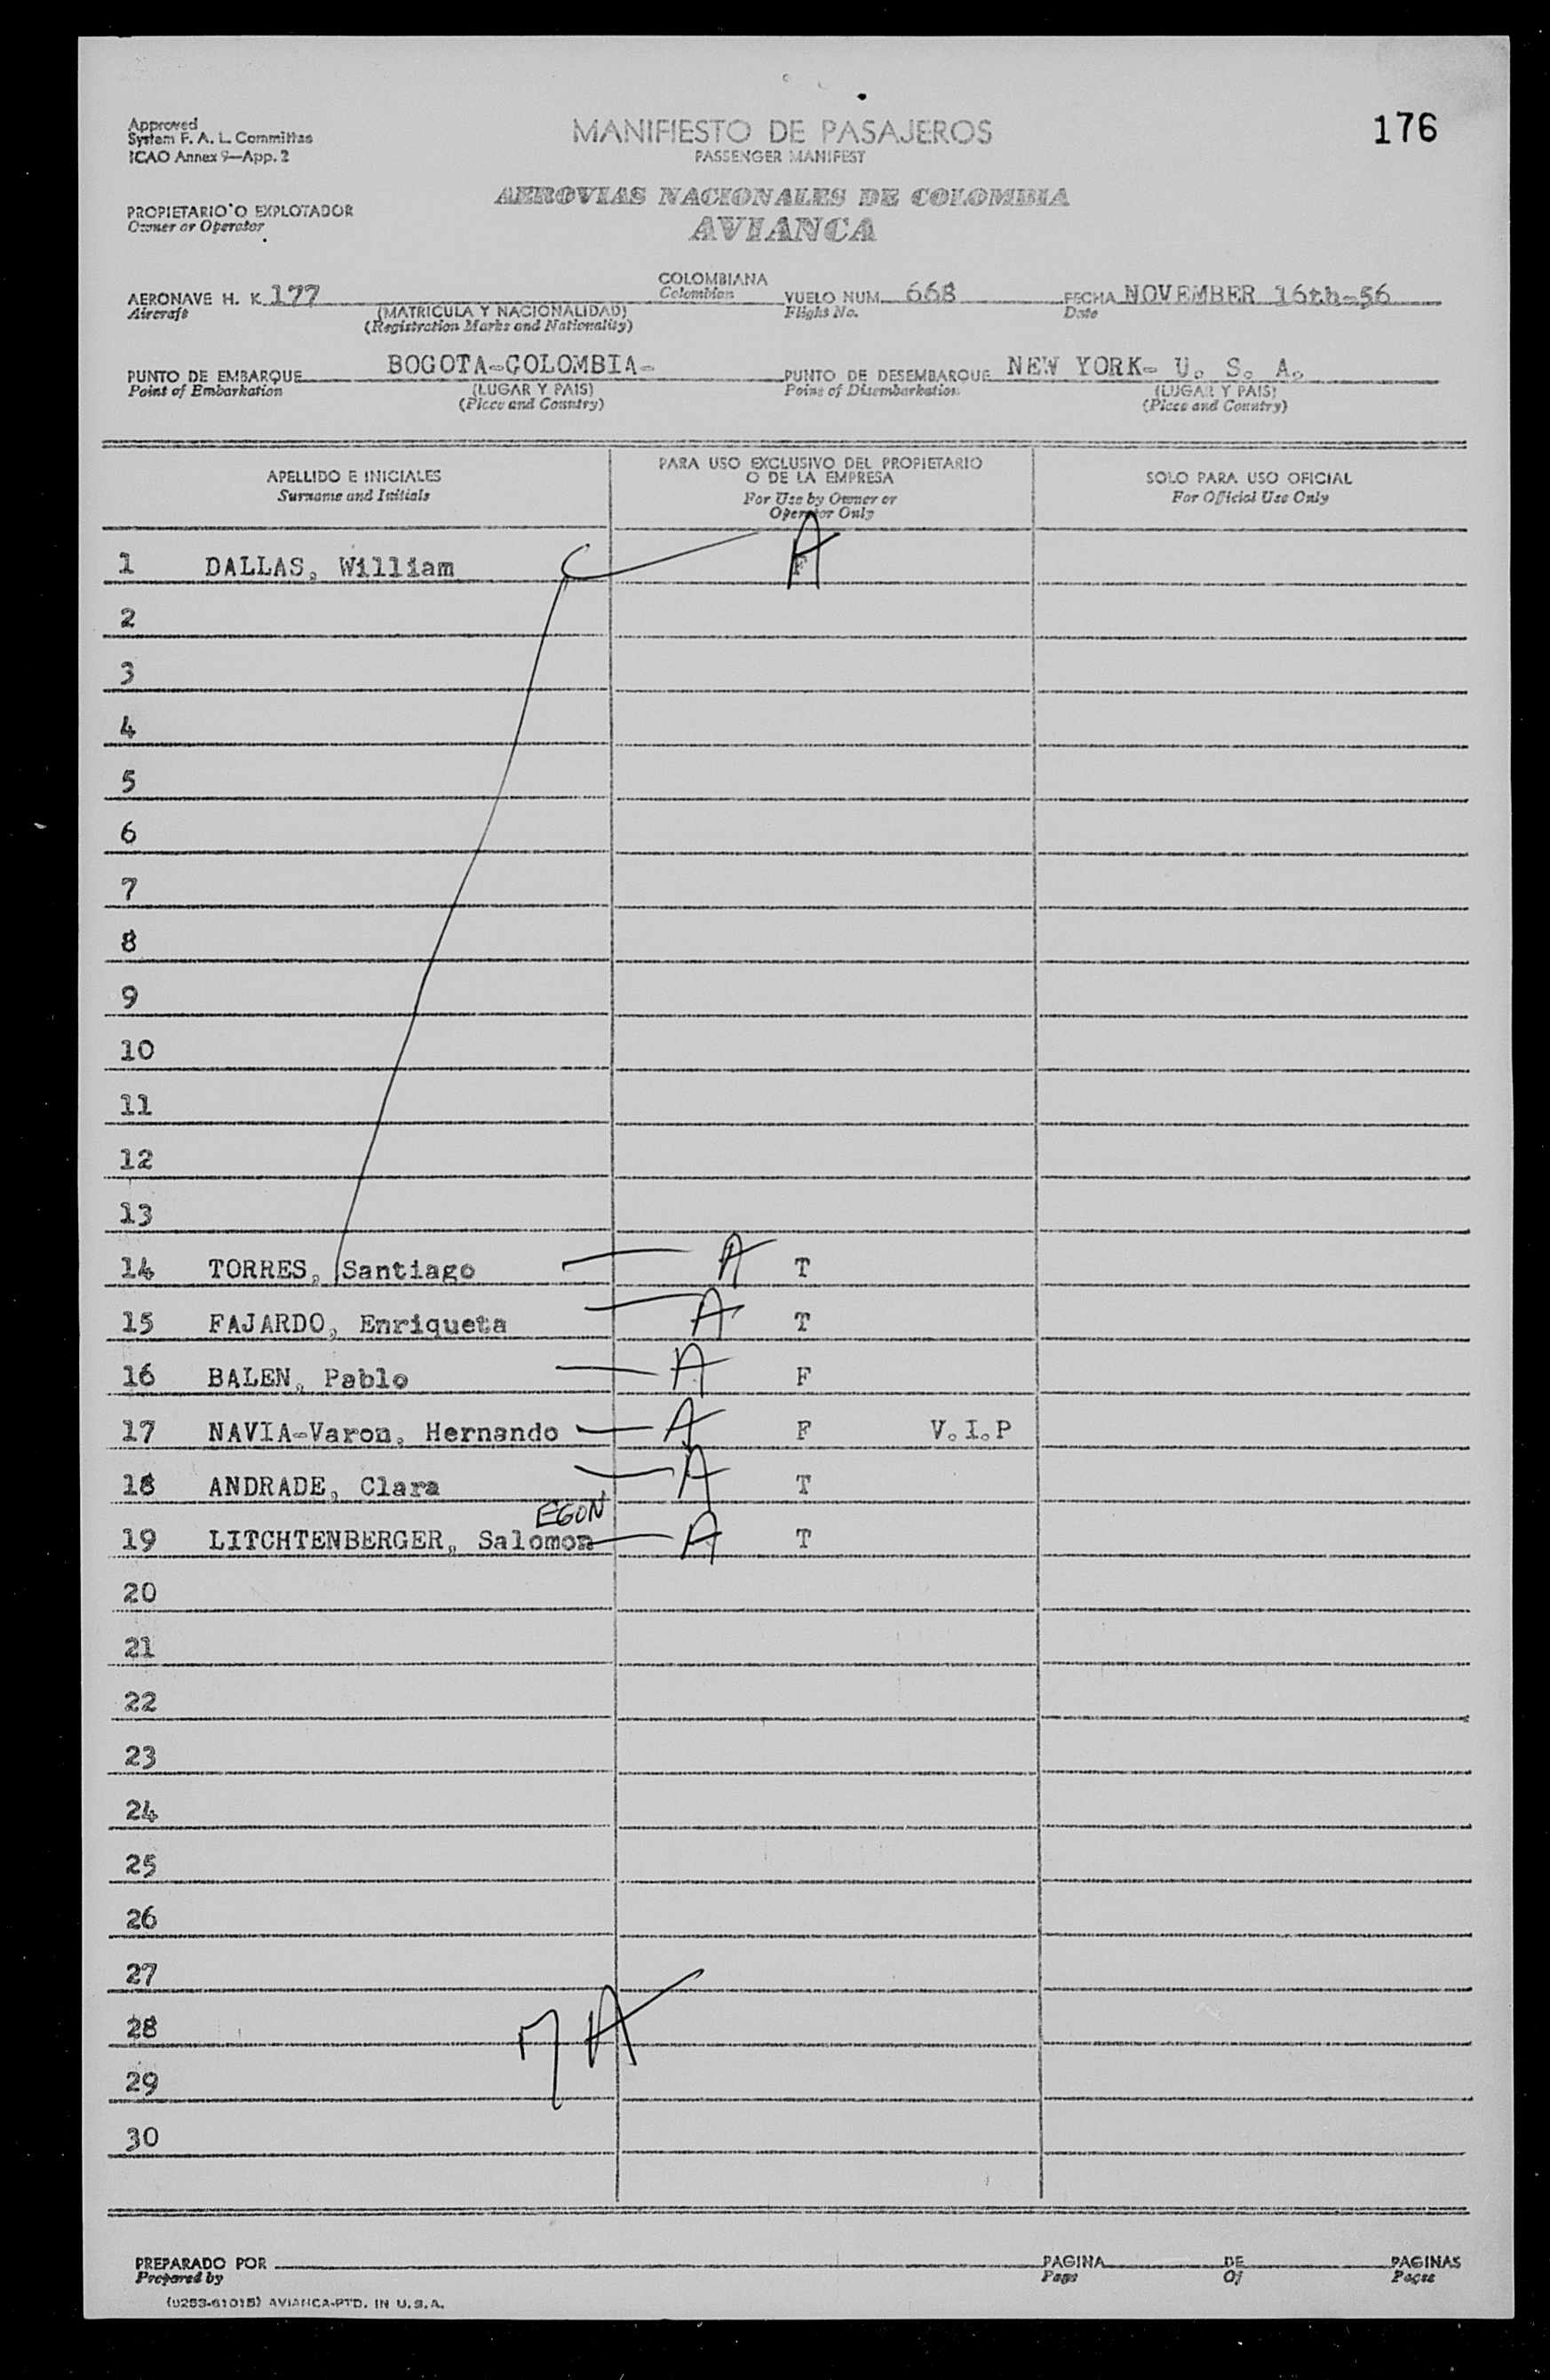 Approved
System F. A. L. Committas
ICAO Annex 9—App. 2
MANIFIESTO DE PASAJEROS
PASSENGER MANIFEST
176
PROPIETARIO O EXPLOTADOR
Owner or Operator
AEROVIAS NACIONALES DE COLOMBIA
AVIANCA
AERONAVE H. K 177 COLOMBIANA VUELO NUM. 668 FECHA NOVEMBER 16th-56
Aircraft (MATRICULA Y NACIONALIDAD) Colombian Flight No. Date
(Registration Marks and Nationality)
PUNTO DE EMBARQUE BOGOTA-COLOMBIA- PUNTO DE DESEMBARQUE NEW YORK- U. S. A.
Point of Embarkation (LUGAR Y PAIS) Point of Disembarkation (LUGAR Y PAIS)
(Place and Country) (Place and Country)
APELLIDO E INICIALES
Surname and Initials
PARA USO EXCLUSIVO DEL PROPIETARIO
O DE LA EMPRESA
For Use by Owner or
Operator Only
SOLO PARA USO OFICIAL
For Official Use Only
1 DALLAS, William A F
2
3
4
5
6
7
8
9
10
11
12
13
14 TORRES, Santiago A T
15 FAJARDO, Enriqueta A T
16 BALEN, Pablo A F
17 NAVIA-Varon, Hernando A F V.I.P
18 ANDRADE, Clara A T
EGON
19 LITCHTENBERGER, Salomon A T
20
21
22
23
24
25
26
27
28 7 A
29
30
PREPARADO POR PAGINA DE PAGINAS
Prepared by Page Of Pages
(0253-61015) AVIANCA-PTD. IN U.S.A.